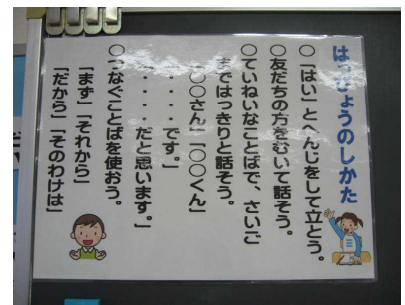 はっぴょうのしかた
○「はい」とへんじをして立とう。
○友だちの方をむいて話そう。
○ていねいなことばで、さいご
まではっきりと話そう。
「○○さん」「○○くん」
「・・・・です。」
「・・・・だと思います。」
○つなぐことばを使おう。
「まず」「それから」
「だから」「そのわけは」